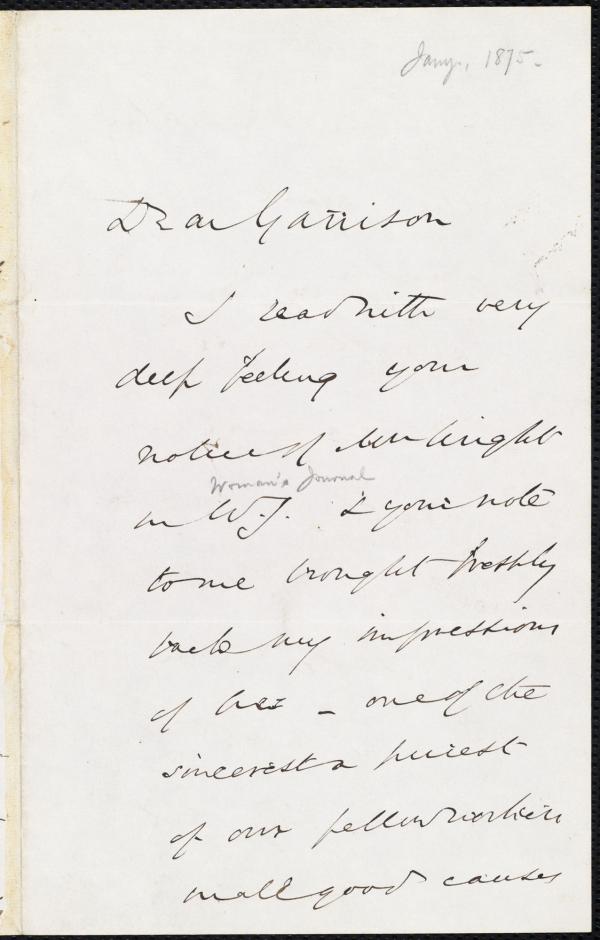 Jany., 1875.
Dear Garrison
I read with very
deep feeling your
notice of Mrs Wright
Woman's Journal
in W.J. & your note
to me brought freshly
back my impressions
of her – one of the
sincerest & purest
of our fellow workers
in all good causes